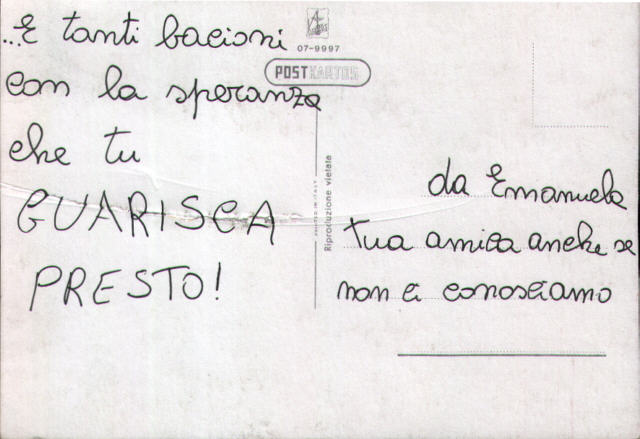 ...E tanti bacioni
con la speranza
che tu
GUARISCA
PRESTO!
07-9997
POSTKARTOS
Riproduzione vietata
da Emanuela
tua amica anche se
non ci conosciamo